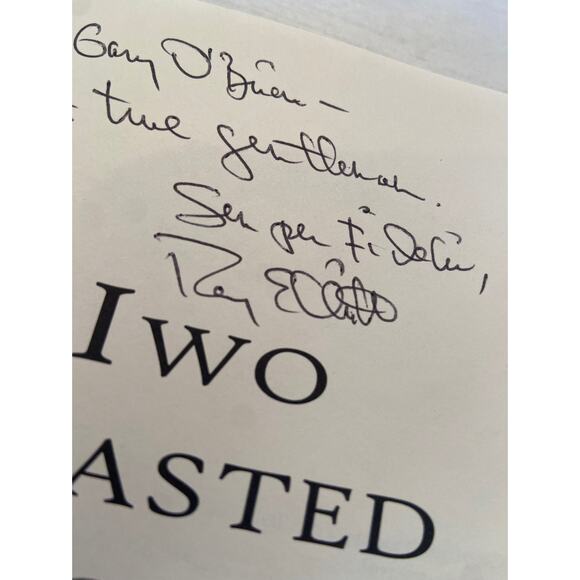 Gary O'Brien —
true gentleman.
Semper Fidelis,
Ray Elliott
IWO
ASTED